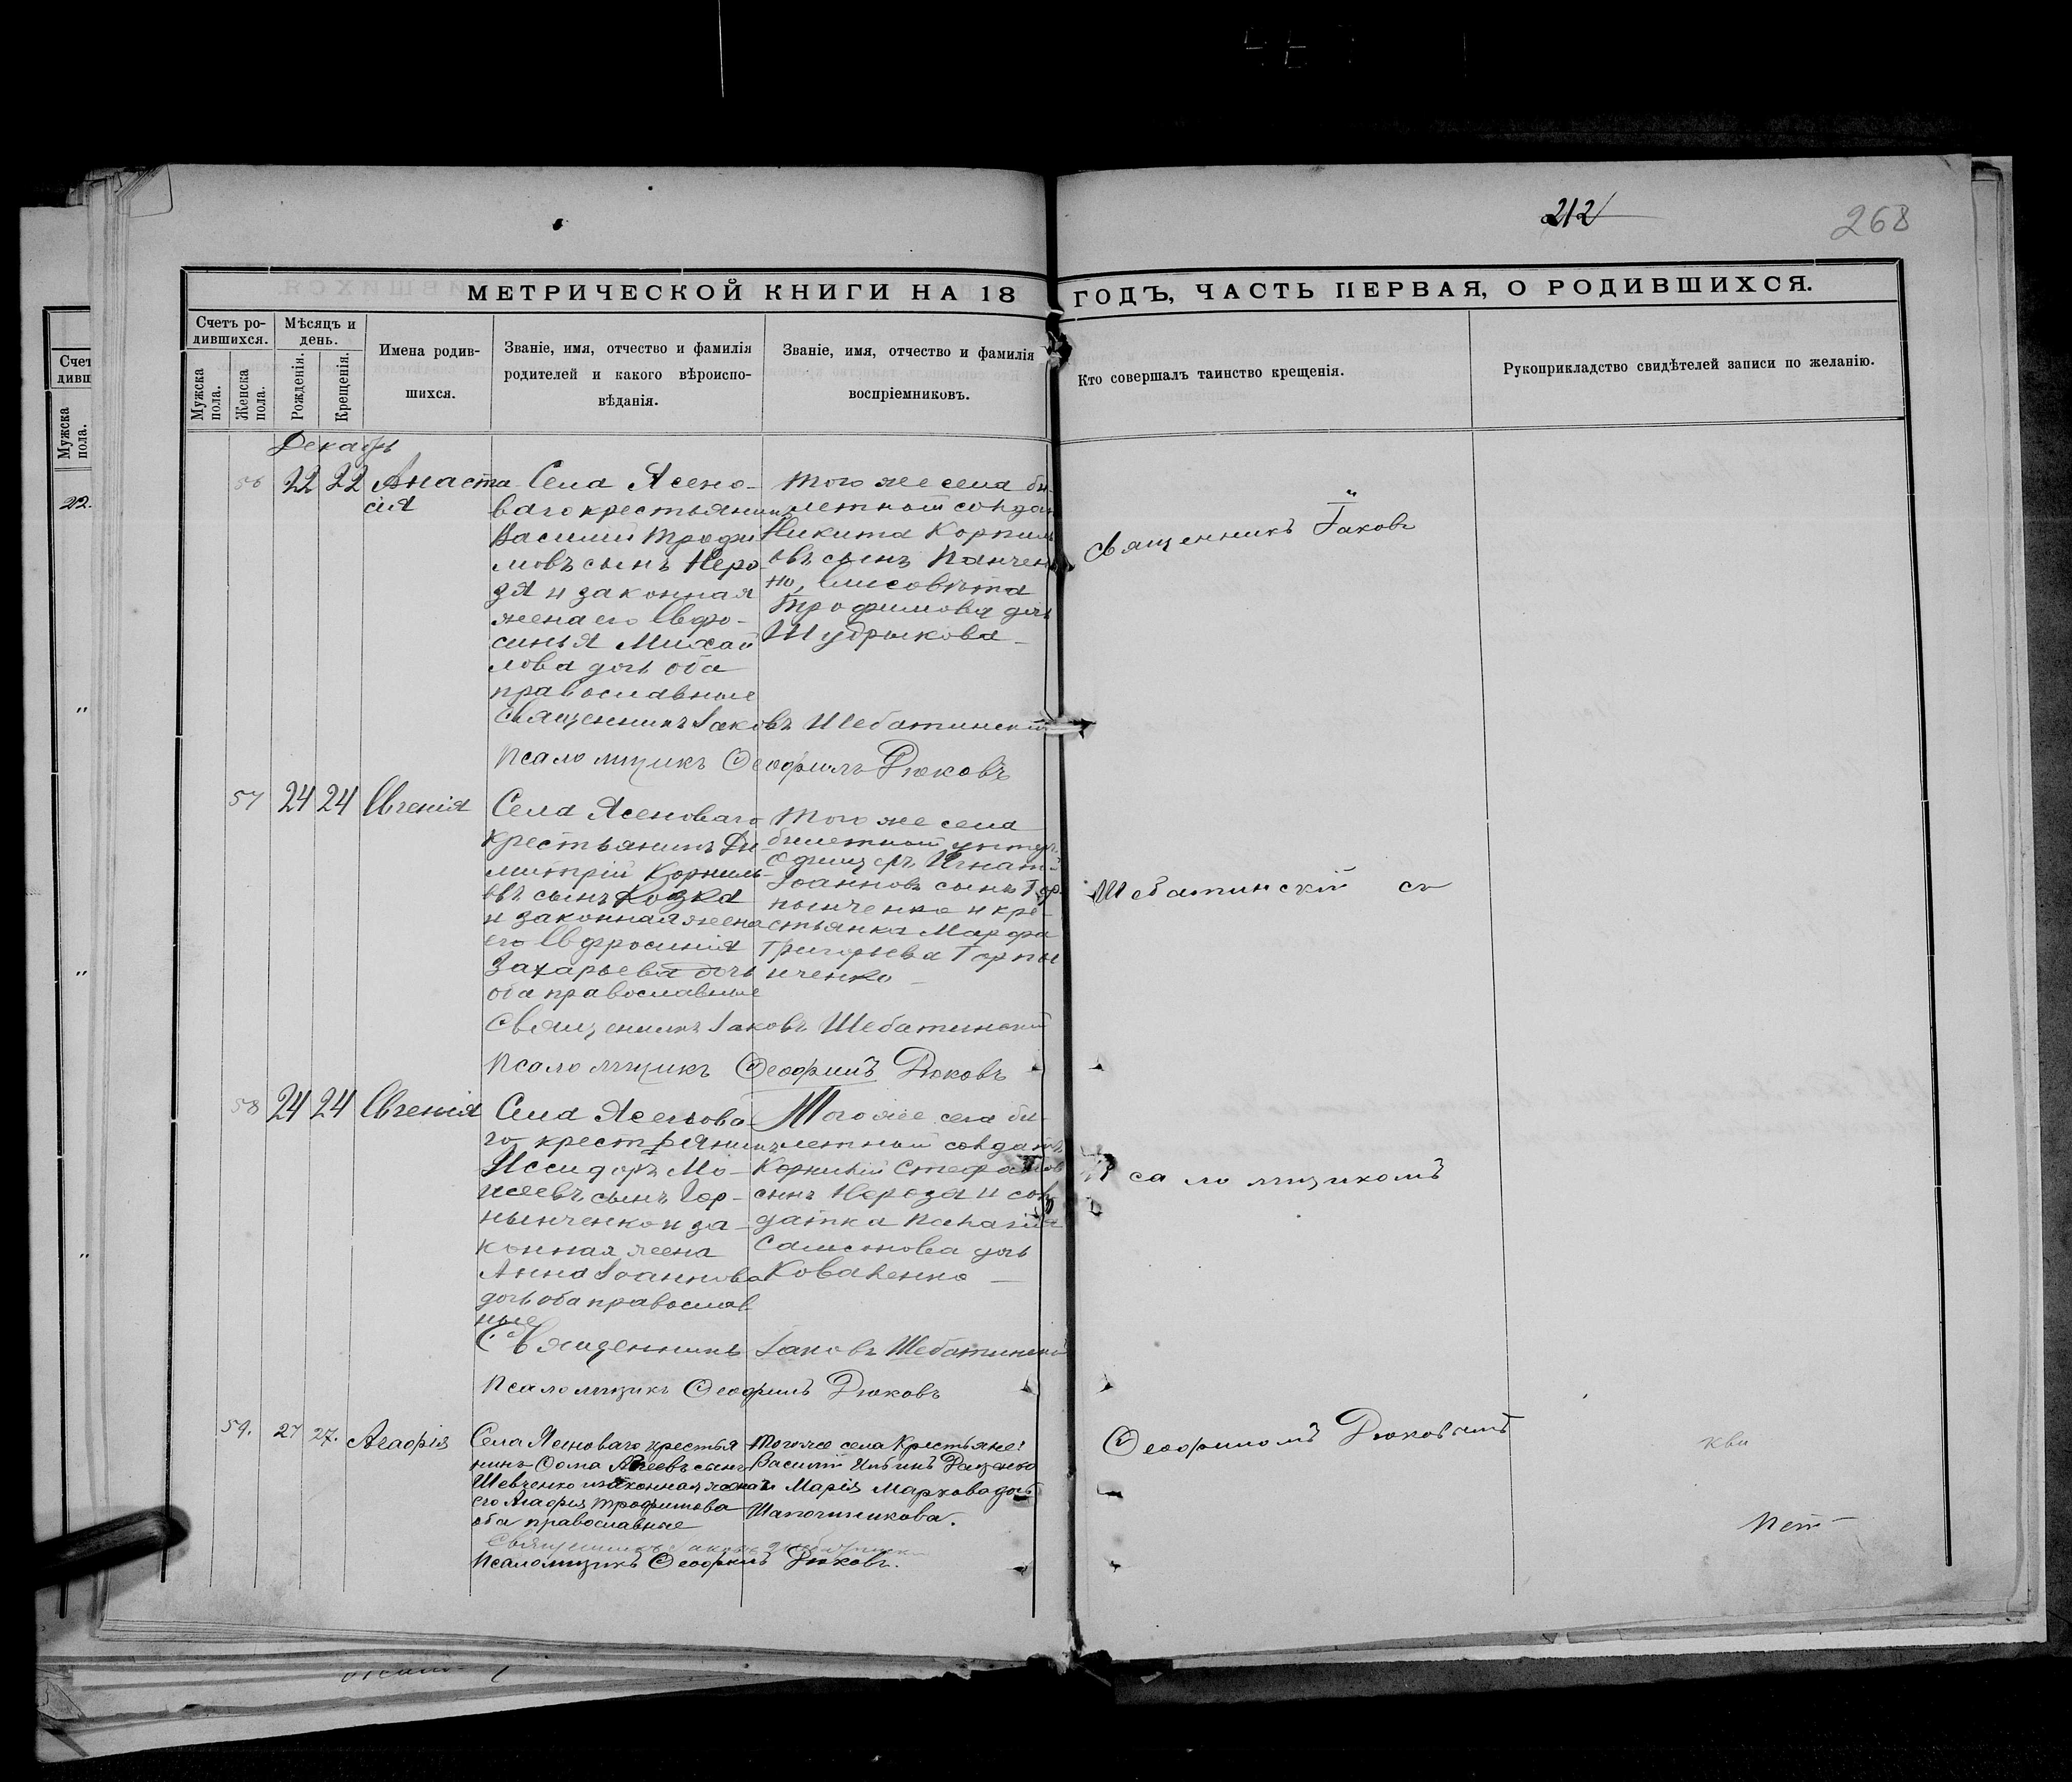 212
268
МЕТРИЧЕСКОЙ КНИГИ НА 18 ГОДЪ, ЧАСТЬ ПЕРВАЯ, О РОДИВШИХСЯ.
Счетъ ро-
дившихся.
Мужска
пола.
Женска
пола.
Мѣсяцъ и
день.
Рожденія.
Крещенія.
Имена родив-
шихся.
Званіе, имя, отчество и фамилія
родителей и какого вѣроиспо-
вѣданія.
Званіе, имя, отчество и фамилія
воспріемниковъ.
Кто совершалъ таинство крещенія.
Рукоприкладство свидѣтелей записи по желанію.
Счет
дивш
Мужска
пола.
22.
Декабрь
56 22 22 Анаста
сія
Села Ясено-
ваго крестьянинъ
Василій Трофи
мовъ сынъ Неро
зя и законная
жена его Евфро-
синья Михай
лова дочь оба
православные
Того же села би-
летный солдат
Никита Корнил
овъ сынъ Панчен
ко, Елисовѣта
Трофимова дочь
Шудрыкова
Священникъ Іаковъ Шебатинскій
Псаломщикъ Ѳеофилъ Рюковъ
57 24 24 Евгенія
Села Ясеноваго
крестьянинъ Ди
митрій Корнил-
овъ сынъ Козка
и законная жена
его Евфросинія
Захарьева дочь
оба православные
Того же села
билетный унтер
Офицеръ Игнат
Іоанновъ сынъ Гор
пынченко и кре-
стьянка Марфа
Григорьева Горпы
нченко
Священникъ Іаковъ Шебатинскій
Псаломщикъ Ѳеофилъ Рюковъ
58 24 24 Евгенія
Села Ясенова-
го крестьянинъ
Иссидоръ Мо-
исеевъ сынъ Гор-
пынченко и за-
конная жена
Анна Іоаннова
дочь оба православ
ные
Того же села би-
летный солдатъ
Корнилій Стефанов
сынъ Нерозя и сол
датка Пелагія
Самсонова дочь
Коваленко
Священникъ Іаковъ Шебатинскій
Псаломщикъ Ѳеофилъ Рюковъ
59. 27 27. Агафія
Села Ясеноваго крестья
нинъ Ѳома сынъ
Шевченко и законная жена
его Агафія Трофимова
оба православные
Того же села Крестьяне:
Василій Ильинъ
и Марія Маркова дочь
Шапошникова.
Священникъ Іаковъ
Псаломщикъ Ѳеофилъ Рюковъ.
Священникъ Іаковъ
Шебатинскій съ
Псаломщикомъ
Ѳеофиломъ Рюковымъ